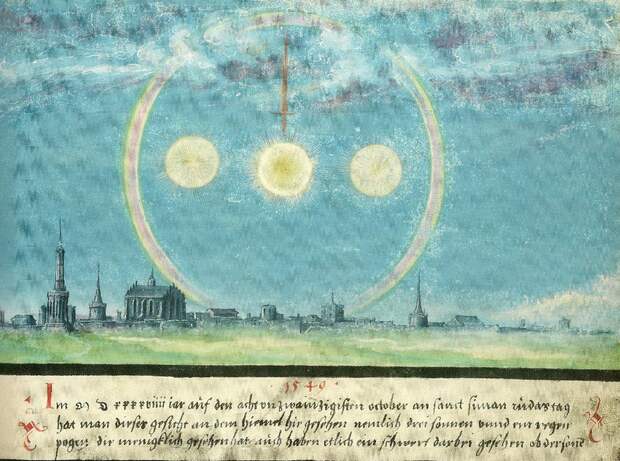 1549.
Im M D xxxxviiii iar auf den acht vnzwainzigisten october an sant siman iudas tag
hat man diser gesicht an dem hiemel hie gesehen nemlich drei sonnen vnnd ein regen
pogen die menigklich gesehen hat auch haben etlich ein schwert darbei gesehen ob der sone